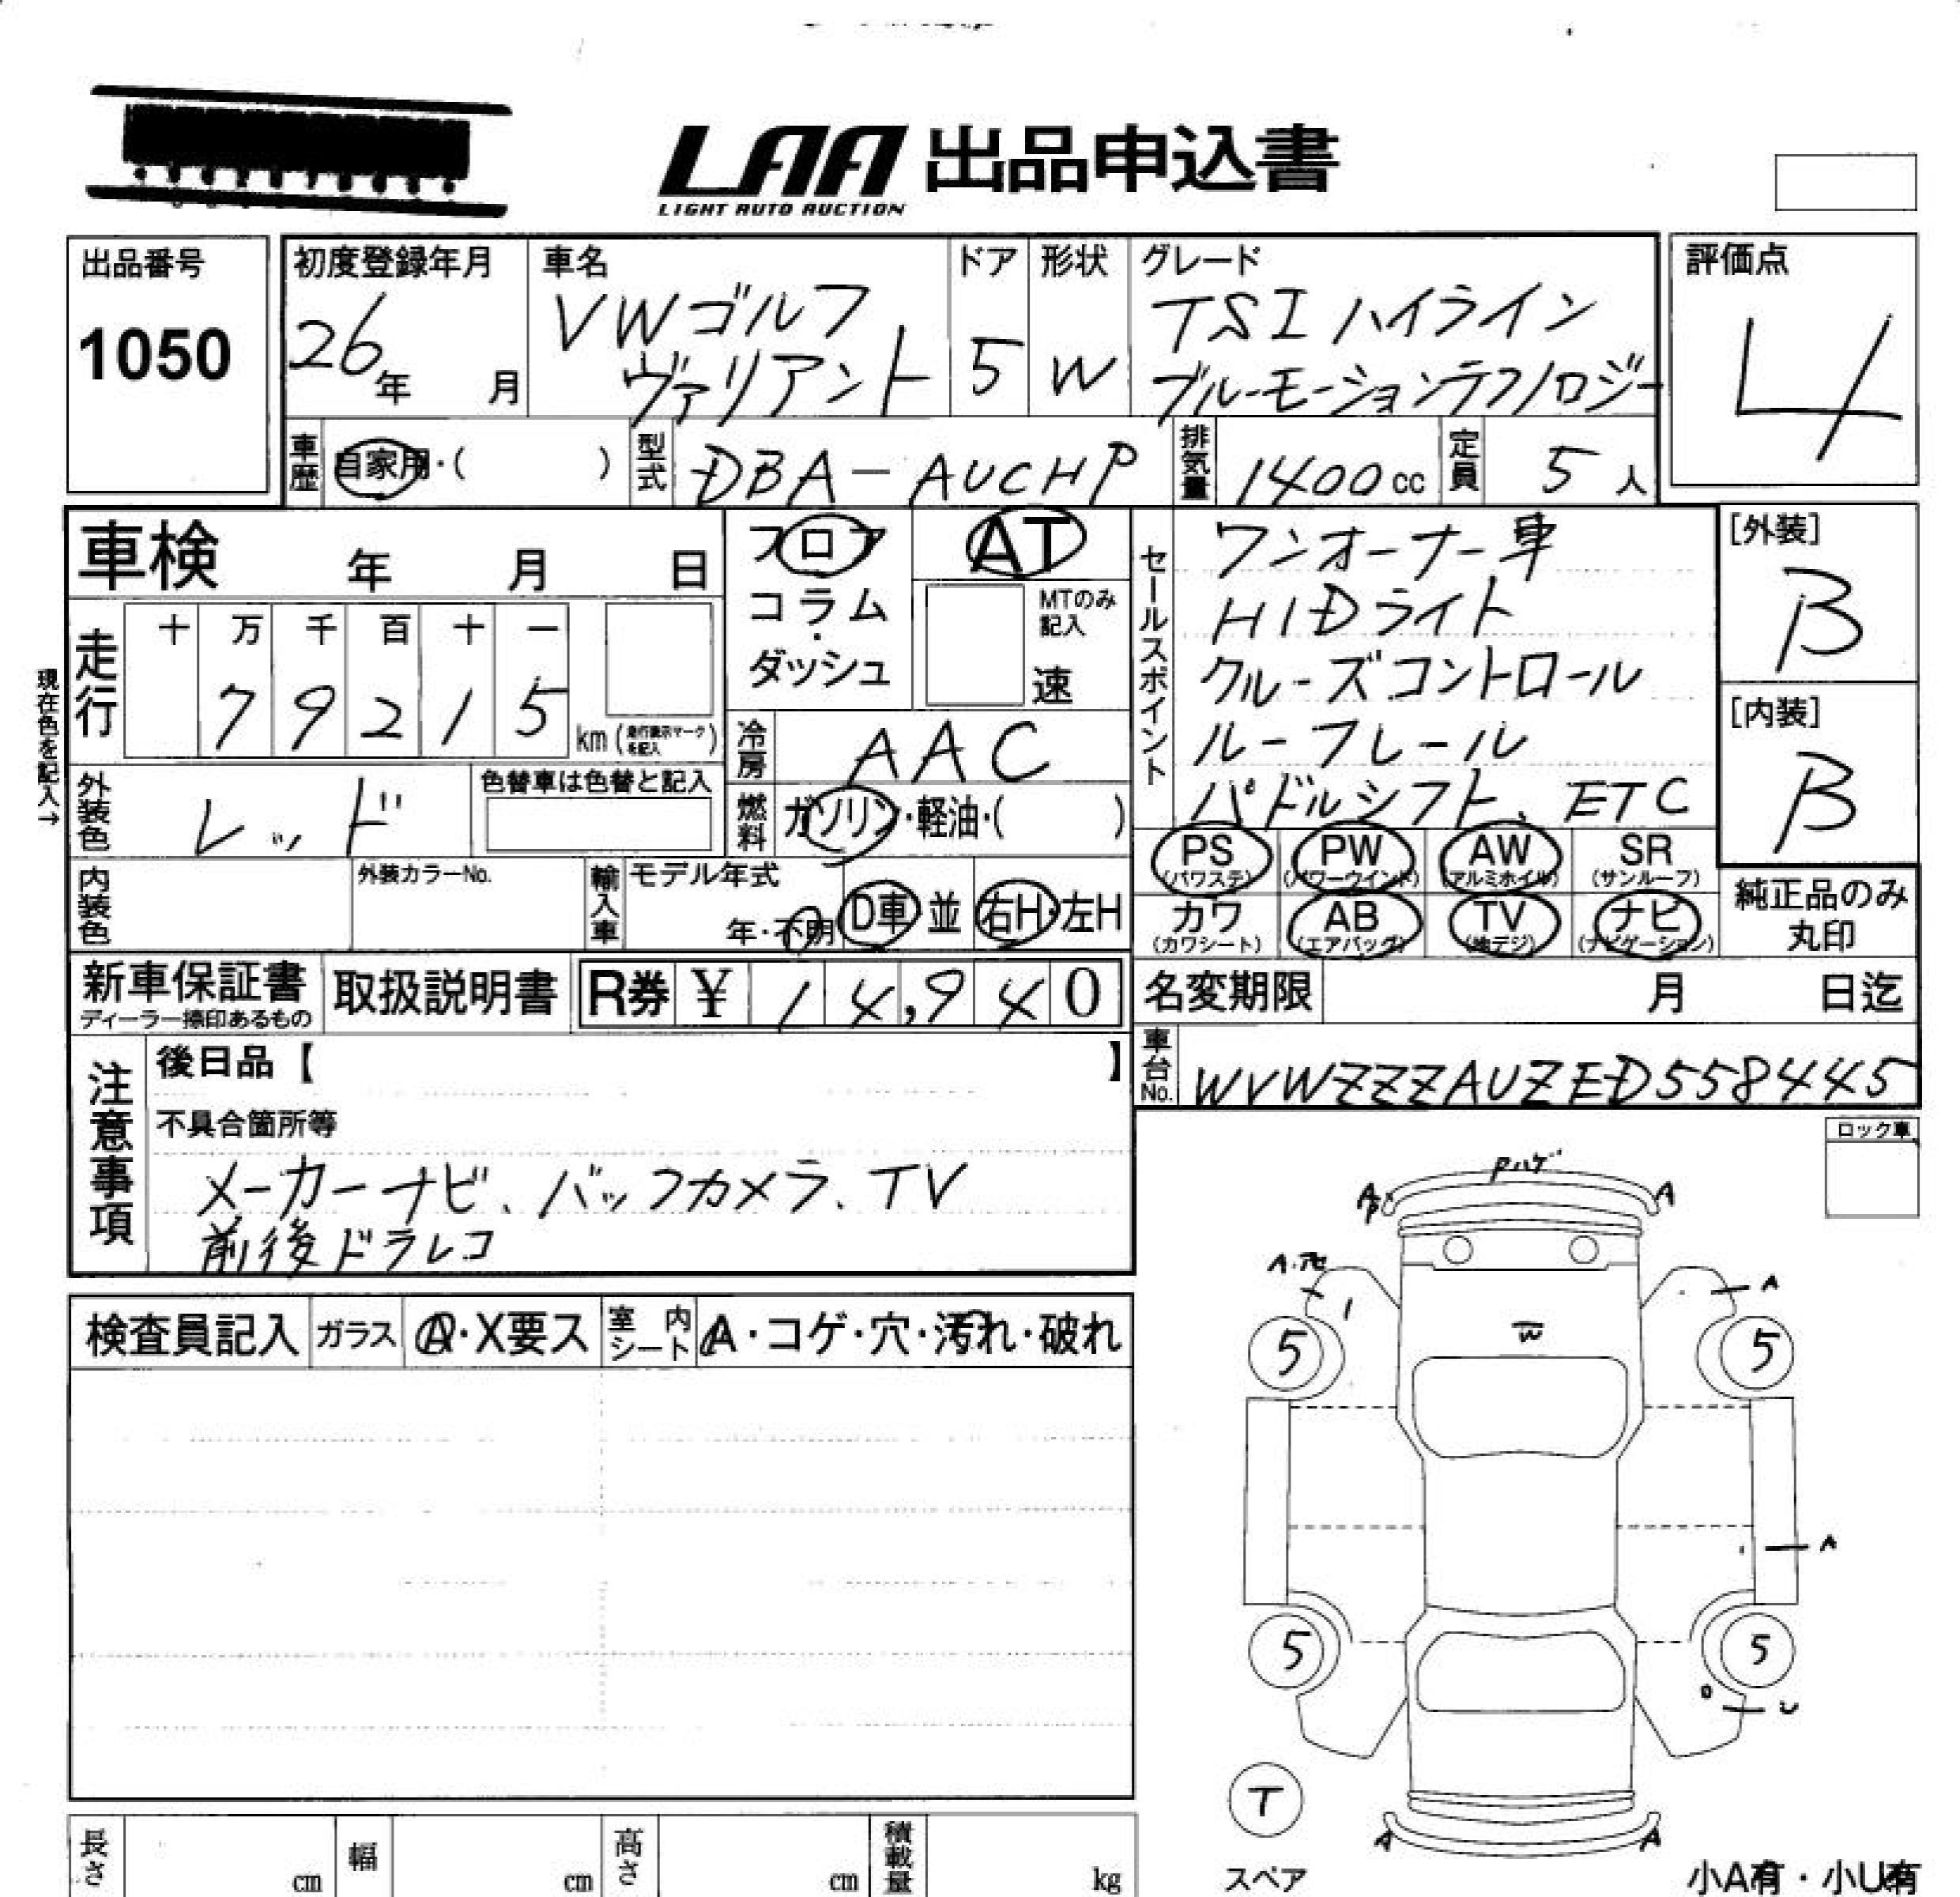 LAA 出品申込書
LIGHT AUTO AUCTION
出品番号
1050
初度登録年月
26年 月
車名
VWゴルフ
ヴァリアント
ドア
5
形状
W
グレード
TSI ハイライン
ブルーモーションテクノロジー
評価点
4
車歴
自家用・( )
型式
DBA-AUCHP
排気量
1400cc
定員
5人
車検 年 月 日
走行
十 万 千 百 十 一
7 9 2 1 5
km (走行表示マークを記入)
現在色を記入→
外装色
レッド
色替車は色替と記入
内装色
外装カラーNo.
フロア
コラム
・
ダッシュ
AT
MTのみ
記入
速
冷房
AAC
燃料
ガソリン・軽油・( )
輸入車
モデル年式
年・不明
D車 並
右H・左H
セールスポイント
ワンオーナー車
HIDライト
クルーズコントロール
ルーフレール
パドルシフト、ETC
[外装]
B
[内装]
B
PS
(パワステ)
PW
(パワーウインド)
AW
(アルミホイル)
SR
(サンルーフ)
カワ
(カワシート)
AB
(エアバッグ)
TV
(地デジ)
ナビ
(ナビゲーション)
純正品のみ
丸印
新車保証書
ディーラー捺印あるもの
取扱説明書
R券 ¥ 14,940
名変期限 月 日迄
車台No.
WVWZZZAUZED558445
注意事項
後日品【 】
不具合箇所等
メーカーナビ、バックカメラ、TV
前後ドラレコ
ロック車
検査員記入
ガラス
A・X要ス
室内シート
A・コゲ・穴・汚れ・破れ
Pハゲ
A
A
A
W
5
5
A
5
5
U
T
スペア
A
A
小A有・小U有
長さ cm
幅 cm
高さ cm
積載量 kg